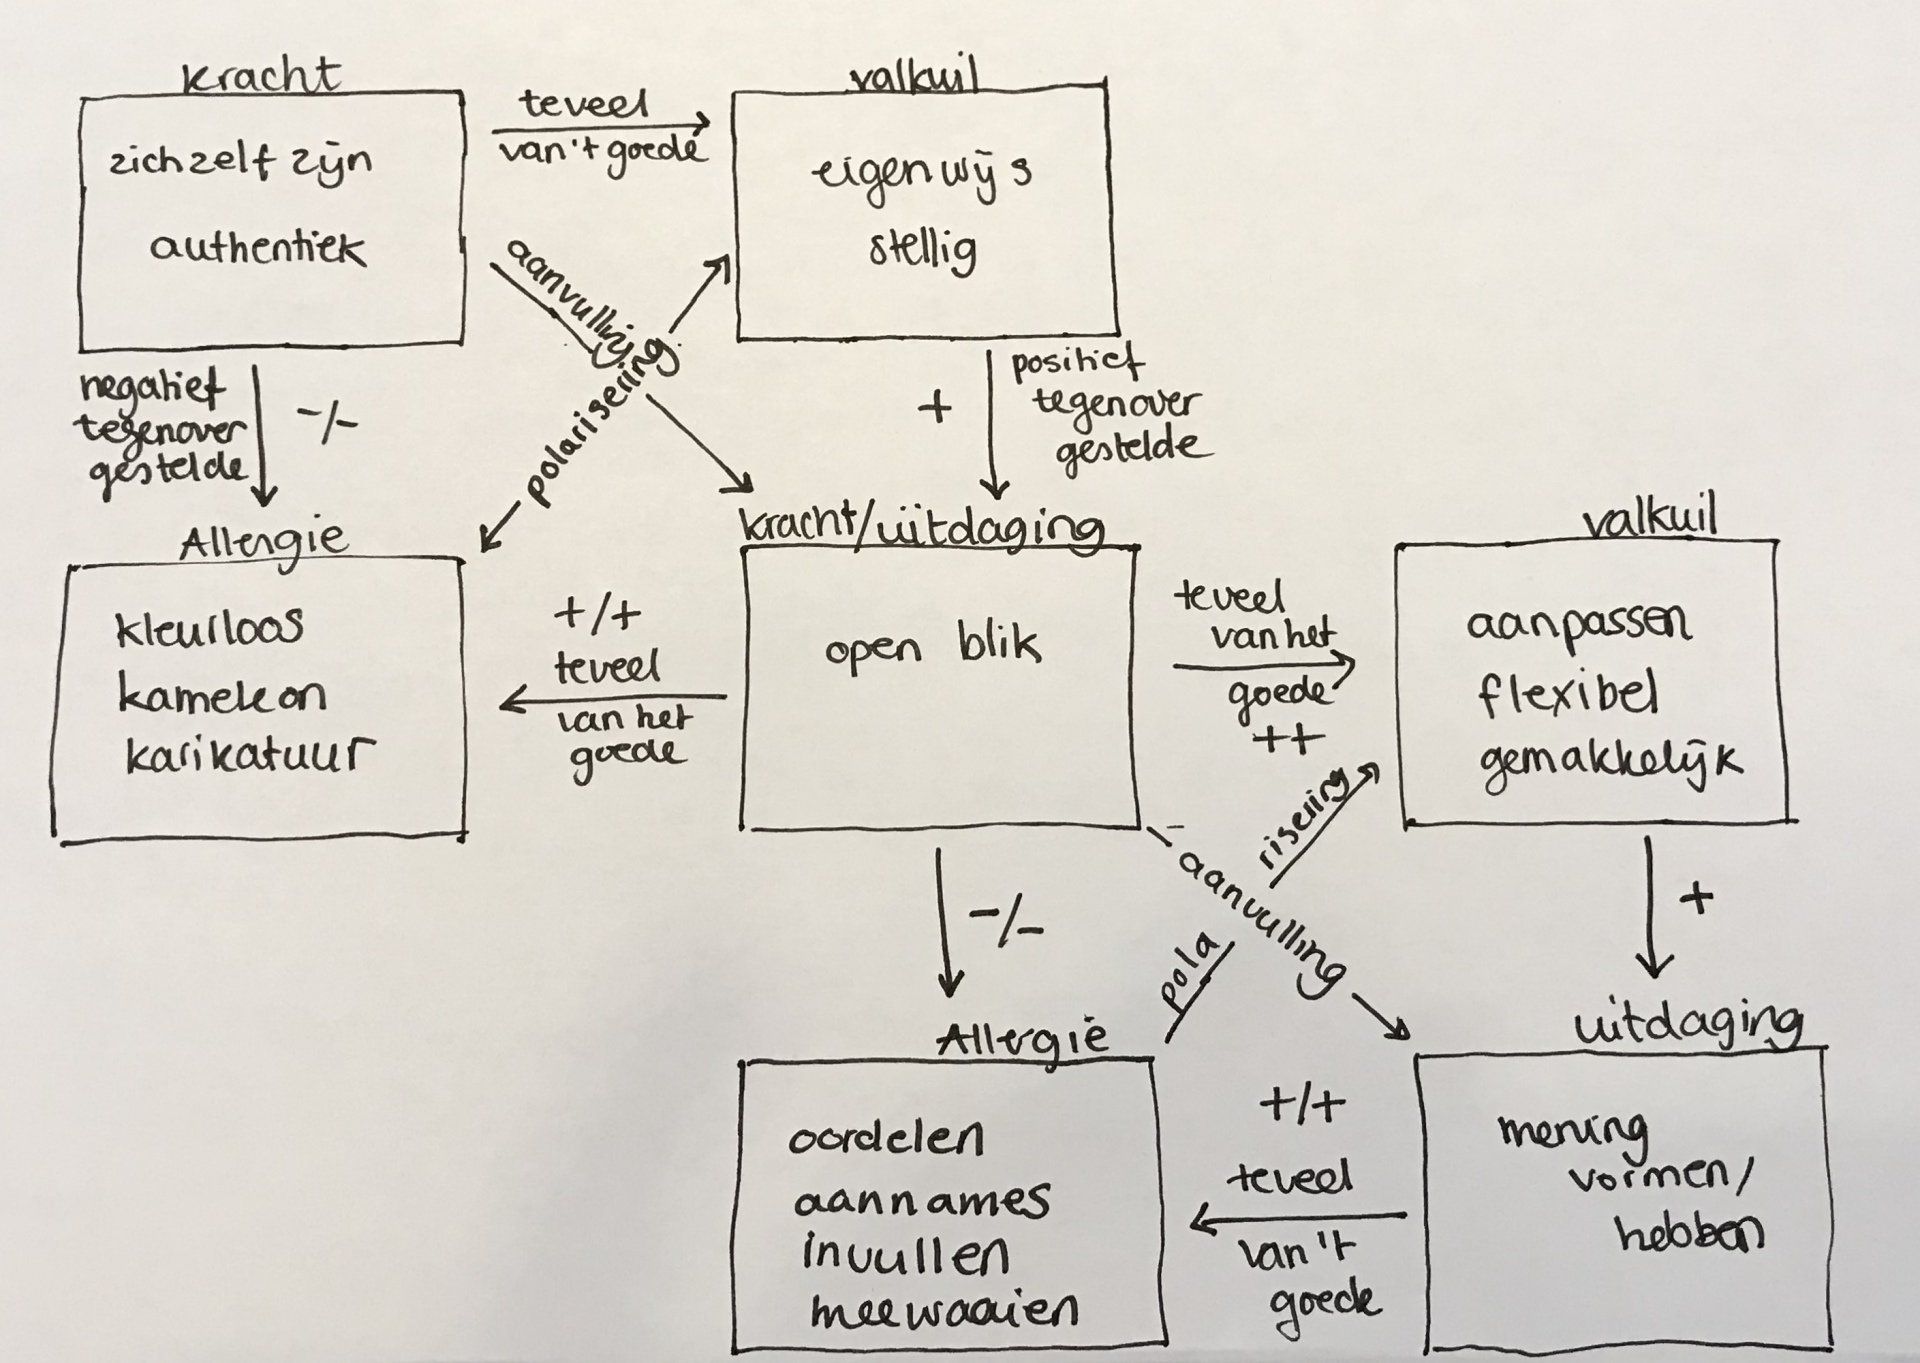 kracht
zichzelf zijn
authentiek
teveel
van 't goede
valkuil
eigenwijs
stellig
aanvulling
polarisering
negatief
tegenover
gestelde
-/-
+
positief
tegenover
gestelde
Allergie
kleurloos
kameleon
karikatuur
+/+
teveel
van het
goede
kracht/uitdaging
open blik
teveel
van het
goede
++
valkuil
aanpassen
flexibel
gemakkelijk
-/-
aanvulling
pola
risering
+
Allergie
oordelen
aannames
invullen
meewaaien
+/+
teveel
van 't
goede
uitdaging
mening
vormen/
hebben